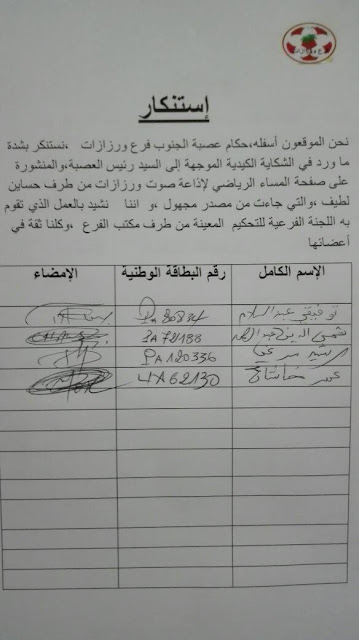 إستنكار
نحن الموقعون أسفله،حكام عصبة الجنوب فرع ورزازات ،نستنكر بشدة
ما ورد في الشكاية الكيدية الموجهة إلى السيد رئيس العصبة،والمنشورة
على صفحة المساء الرياضي لإذاعة صوت ورزازات من طرف حساين
لطيف،والتي جاءت من مصدر مجهول ،و اننا نشيد بالعمل الذي تقوم
به اللجنة الفرعية للتحكيم المعينة من طرف مكتب الفرع ،وكلنا ثقة في
أعضائها
الإسم الكامل رقم البطاقة الوطنية الإمضاء
توفيقي عبد السلام
شمس الدين عبد الله JA72188
رشيد PA120336
عمر 62130